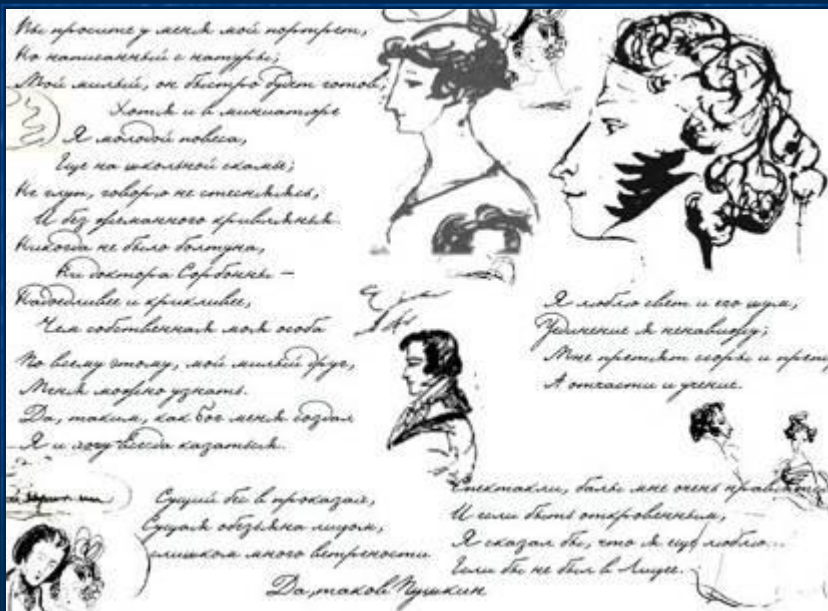 Вы просите у меня мой портрет,
Но написанный с натуры;
Мой милый, он быстро будет готов,
Хотя и в миниатюре
Я молодой повеса,
Еще на школьной скамье;
Не глуп, говорю не стесняясь,
И без жеманного кривлянья.
Никогда не было болтуна,
Ни доктора Сорбонны –
Надоедливее и крикливее,
Чем собственная моя особа
По всему этому, мой милый друг,
Меня можно узнать.
Да, таким, как Бог меня создал
Я и хочу всегда казаться.
Сущий бес в проказах,
Сущая обезьяна лицом,
слишком много ветрености
Да, таков Пушкин
Я люблю свет и его шум,
Уединение я ненавижу;
Мне претят ссоры и препи
А отчасти и учение.
Спектакли, балы мне очень нравятся
И если быть откровенным,
Я сказал бы, что я еще люблю...
Если бы не был в Лицее.